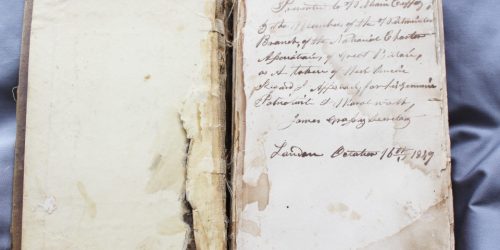 Presented to William Cuffay
By the Members of the Westminster
Branch, of the National Charter
Association of Great Britain
as A token of their sincere
Regard & Approval for his genuine
Patriotism & Moral worth
James Grassby Secretary
London October 16th 1849